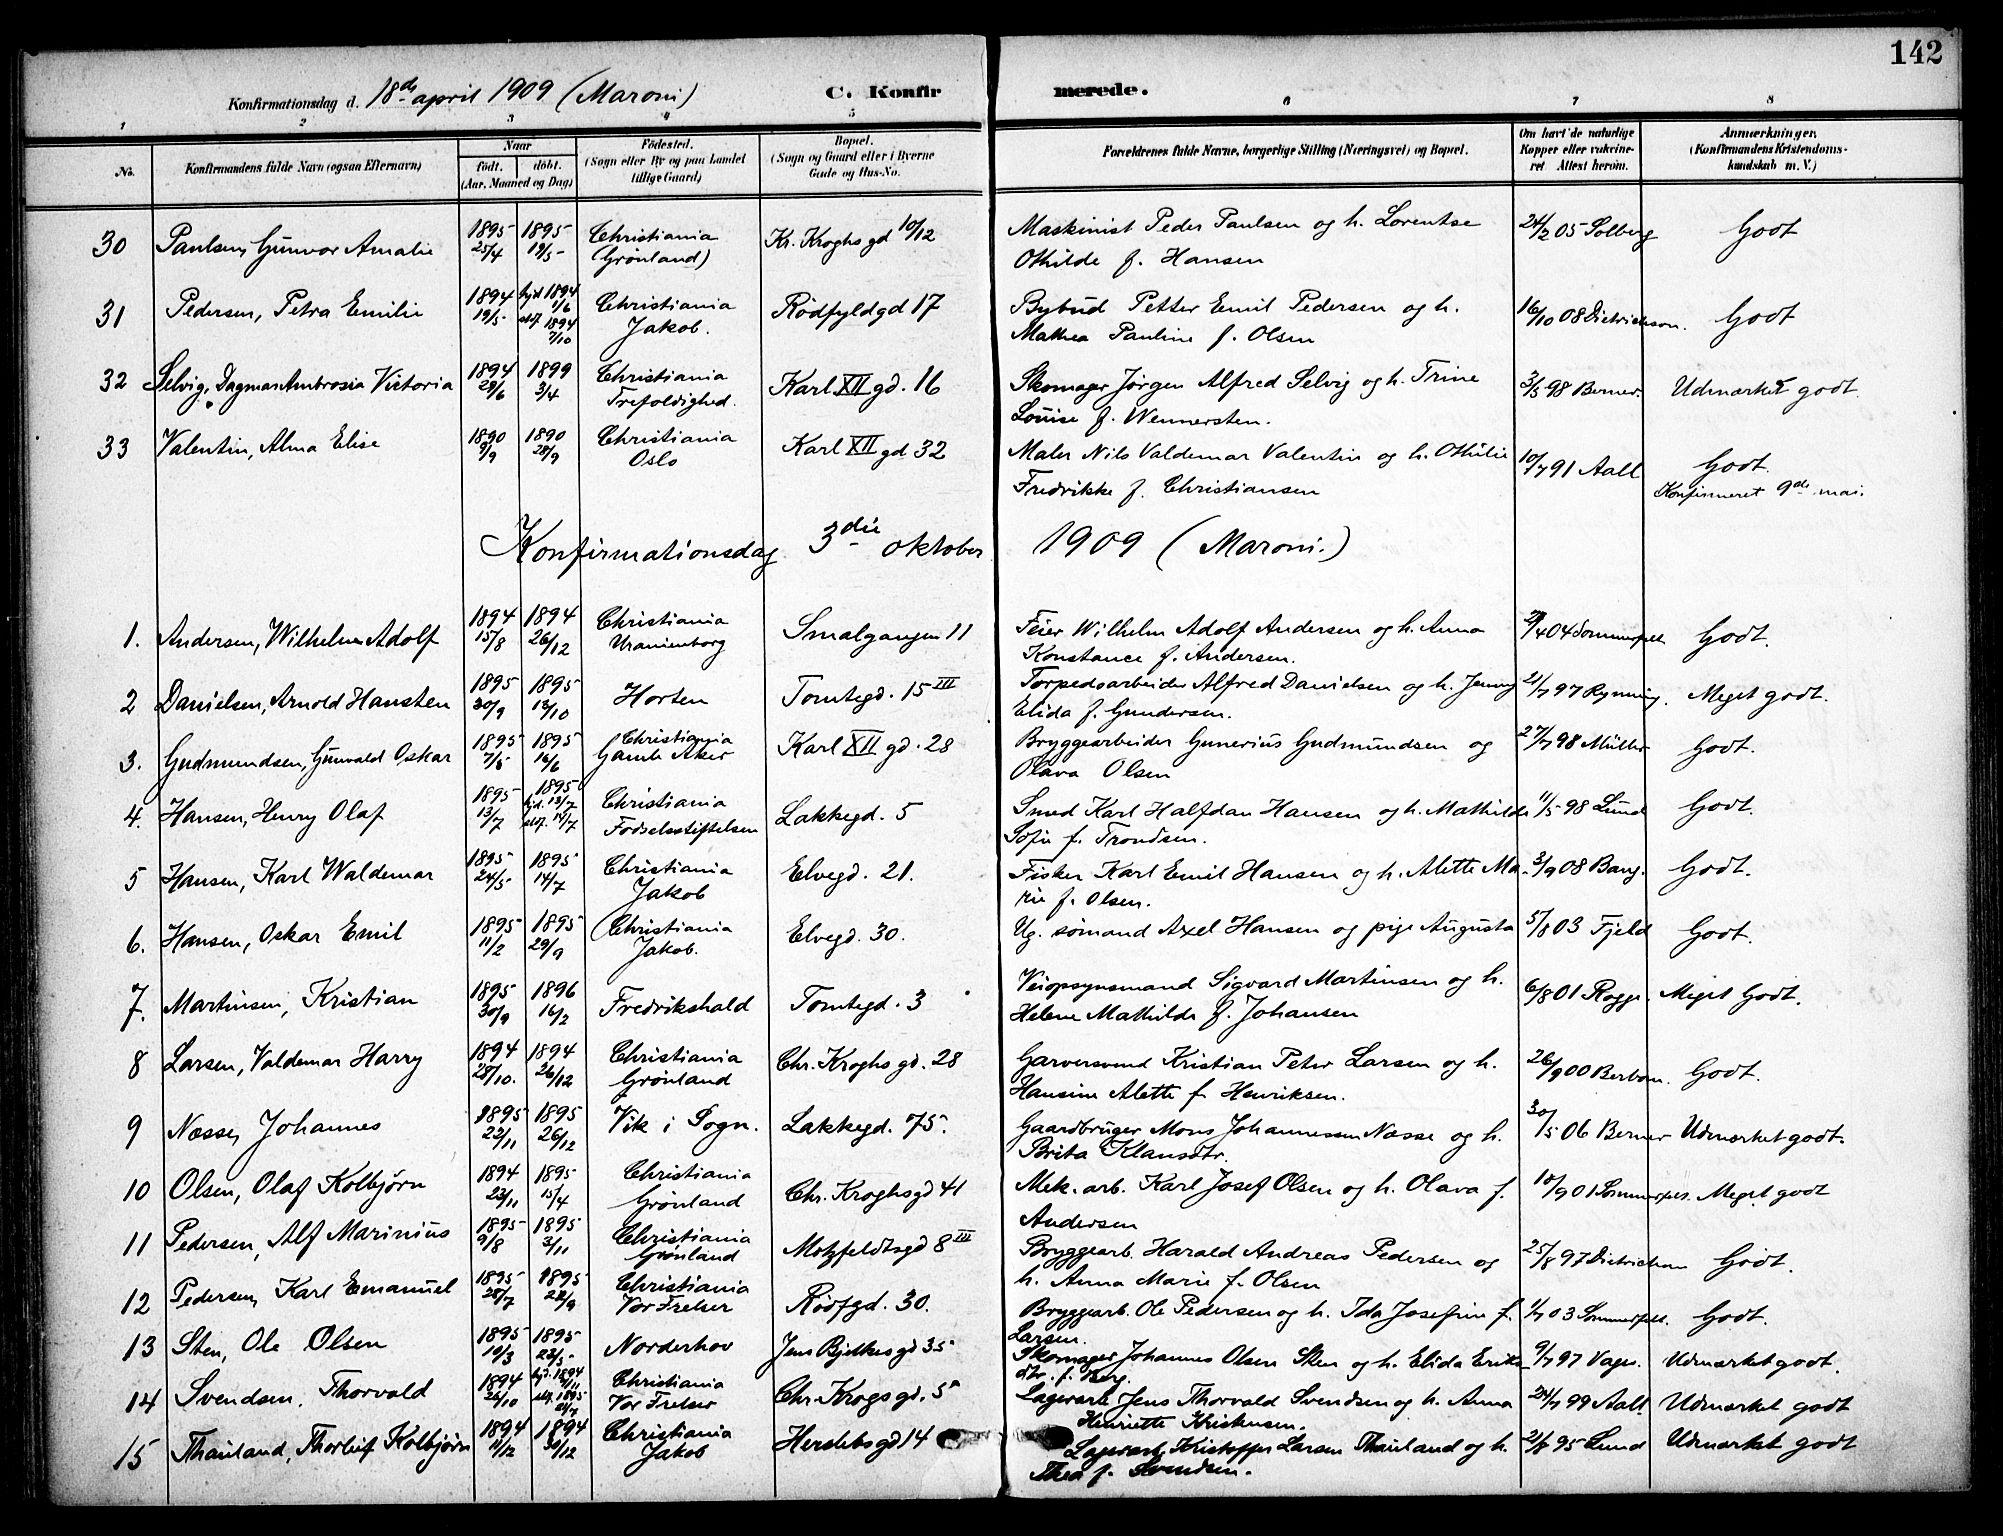 142
Konfirmationsdag d. 18de april 1909 (Maroni) C. Konfirmerede.
1 2 3 4 5 6 7 8
No. Konfirmandens fulde Navn (ogsaa Efternavn) Naar født. døbt. (Aar, Maaned og Dag) Fødested. (Sogn eller By og paa Landet tillige Gaard) Bopæl. (Sogn og Gaard eller i Byerne Gade og Hus-No. Forældrenes fulde Navne, borgerlige Stilling (Næringsvei) og Bopæl. Om havt de naturlige Kopper eller vakcineret Attest herom. Anmærkninger. (Konfirmandens Kristendomskundskab m. V.)
30 Paulsen, Gunvor Amalie 1895 25/4 1895 19/5 Christiania (Grönland) Kr. Kroghsgd 10/12 Maskinist Peder Paulsen og h. Lorentse Othilde f. Hansen 24/2 05 Solberg Godt
31 Pedersen, Petra Emilie 1894 19/5 hjd 1894 1/6 stf. 1894 7/10 Christiania Jakob. Rødfyldgd 17 Bybud Petter Emil Pedersen og h. Mathea Pauline f. Olsen 16/10 08 Dietrichson. Godt
32 Selvig, Dagmar Ambrosia Victoria 1894 29/6 1899 3/4 Christiania Trefoldighed. Karl XII gd. 16 Skomager Jörgen Alfred Selvig og h. Trine Louise f. Wennersten. 3/5 98 Berner. Udmærket godt.
33 Valentin, Alma Elise 1890 9/9 1890 28/9 Christiania Oslo Karl XII gd 32 Maler Nils Valdemar Valentin og h. Othilie Fredrikke f. Christiansen 10/7 91 Aall Godt. Konfirmeret 9de mai.
Konfirmationsdag 3die oktober 1909 (Maroni.)
1. Andersen, Wilhelm Adolf 1894 15/8 1894 26/12 Christiania Uranienborg Smalgangen 11 Feier Wilhelm Adolf Andersen og h. Anna Konstance f. Andersen. 04 Sommerfelt Godt.
2 Danielsen, Arnold Hansten 1895 30/9 1895 13/10 Horten Tomtegd. 15 III Torpedoarbeider Alfred Danielsen og h. Jenny Elida f. Gundersen. 21/7 97 Rynning. Meget godt.
3. Gudmundsen, Gunvald Oskar 1895 7/5 1895 16/6 Christiania Gamle Aker Karl XII gd. 28 Bryggearbeider Gunerius Gudmundsen og Olava Olsen 27/7 98 Müller Godt.
4. Hansen, Henry Olaf 1895 13/7 1895 hjd. 13/7 stf. 14/7 Christiania Födselsstiftelsen Lakkegd. 5 Smed Karl Halfdan Hansen og h. Mathilde Sofie f. Trondsen. 11/5 98 Lund Godt.
5 Hansen, Karl Waldemar 1895 24/5 1895 14/7 Christiania Jakob Elvegd. 21. Fisker Karl Emil Hansen og h. Alette Marie f. Olsen. 3/9 08 Bang. Godt.
6. Hansen, Oskar Emil 1895 11/2 1895 29/9 Christiania Jakob. Elvegd. 30. Ug. sömand Axel Hansen og pige Augusta 5/8 03 Fjeld Godt.
7. Martinsen, Kristian 1895 30/9 1896 16/2 Fredrikshald Tomtegd. 3 Veiopsynsmand Sigvard Martinsen og h. Helene Mathilde f. Johansen 6/8 01 Rogge. Meget Godt.
8 Larsen, Valdemar Harry 1894 28/10. 1894 26/12 Christiania Grönland Chr. Kroghsgd. 28 Garversvend Kristian Peter Larsen og h. Hansine Alette f. Henriksen. 26/9 00 Berbom. Godt.
9 Næsse, Johannes 1895 22/11 1895 26/12 Vik i Sogn. Lakkegd. 75. Gaardbruger Mons Johannessen Næsse og h. Brita Klausdtr. 30/5 06 Berner Udmærket godt.
10 Olsen, Olaf Kolbjørn 1894 23/11 1895 15/4 Christiania Grönland Chr. Kroghsgd 41 Mek. arb. Karl Josef Olsen og h. Olava f. Andersen 10/9 01 Sommerfelt. Meget godt
11 Pedersen, Alf Marinius 1895 9/8 1895 3/11 Christiania Grønland Motzfeldtsgd 8 III Bryggearb. Harald Andreas Pedersen og h. Anna Marie f. Olsen 25/8 97 Dietrichson Godt.
12 Pedersen, Karl Emanuel 1895 28/7 1895 22/9 Christiania Vor Frelser Rödfgd. 30. Bryggearb. Ole Pedersen og h. Ida Josefine f. Larsen. 1/7 03 Sommerfelt. Godt.
13 Sten, Ole Olsen 1895 10/3 1895 23/5 Norderhov Jens Bjelkesgd 35 Skomager Johannes Olsen Sten og h. Elida Eriksdtr. f. Berg. 9/7 97 Vages. Udmærket godt.
14 Svendsen, Thorvald 1894 26/10 hjd. 1894 stf. 1895 21/7 Christiania Vor Frelser Chr. Krogsgd. 5 Lagerarb. Jens Thorvald Svendsen og h. Anna Henriette Kristensen. 24/7 99 Aall. Udmærket godt
15 Thauland, Thorleif Kolbjörn 1894 11/12 1894 30/12 Christiania Jakob Herslebsgd 14 Lagerarb. Kristoffer Larsen Thauland og h. Thea f. Svendsen. 2/8 95 Lund Udmærket godt